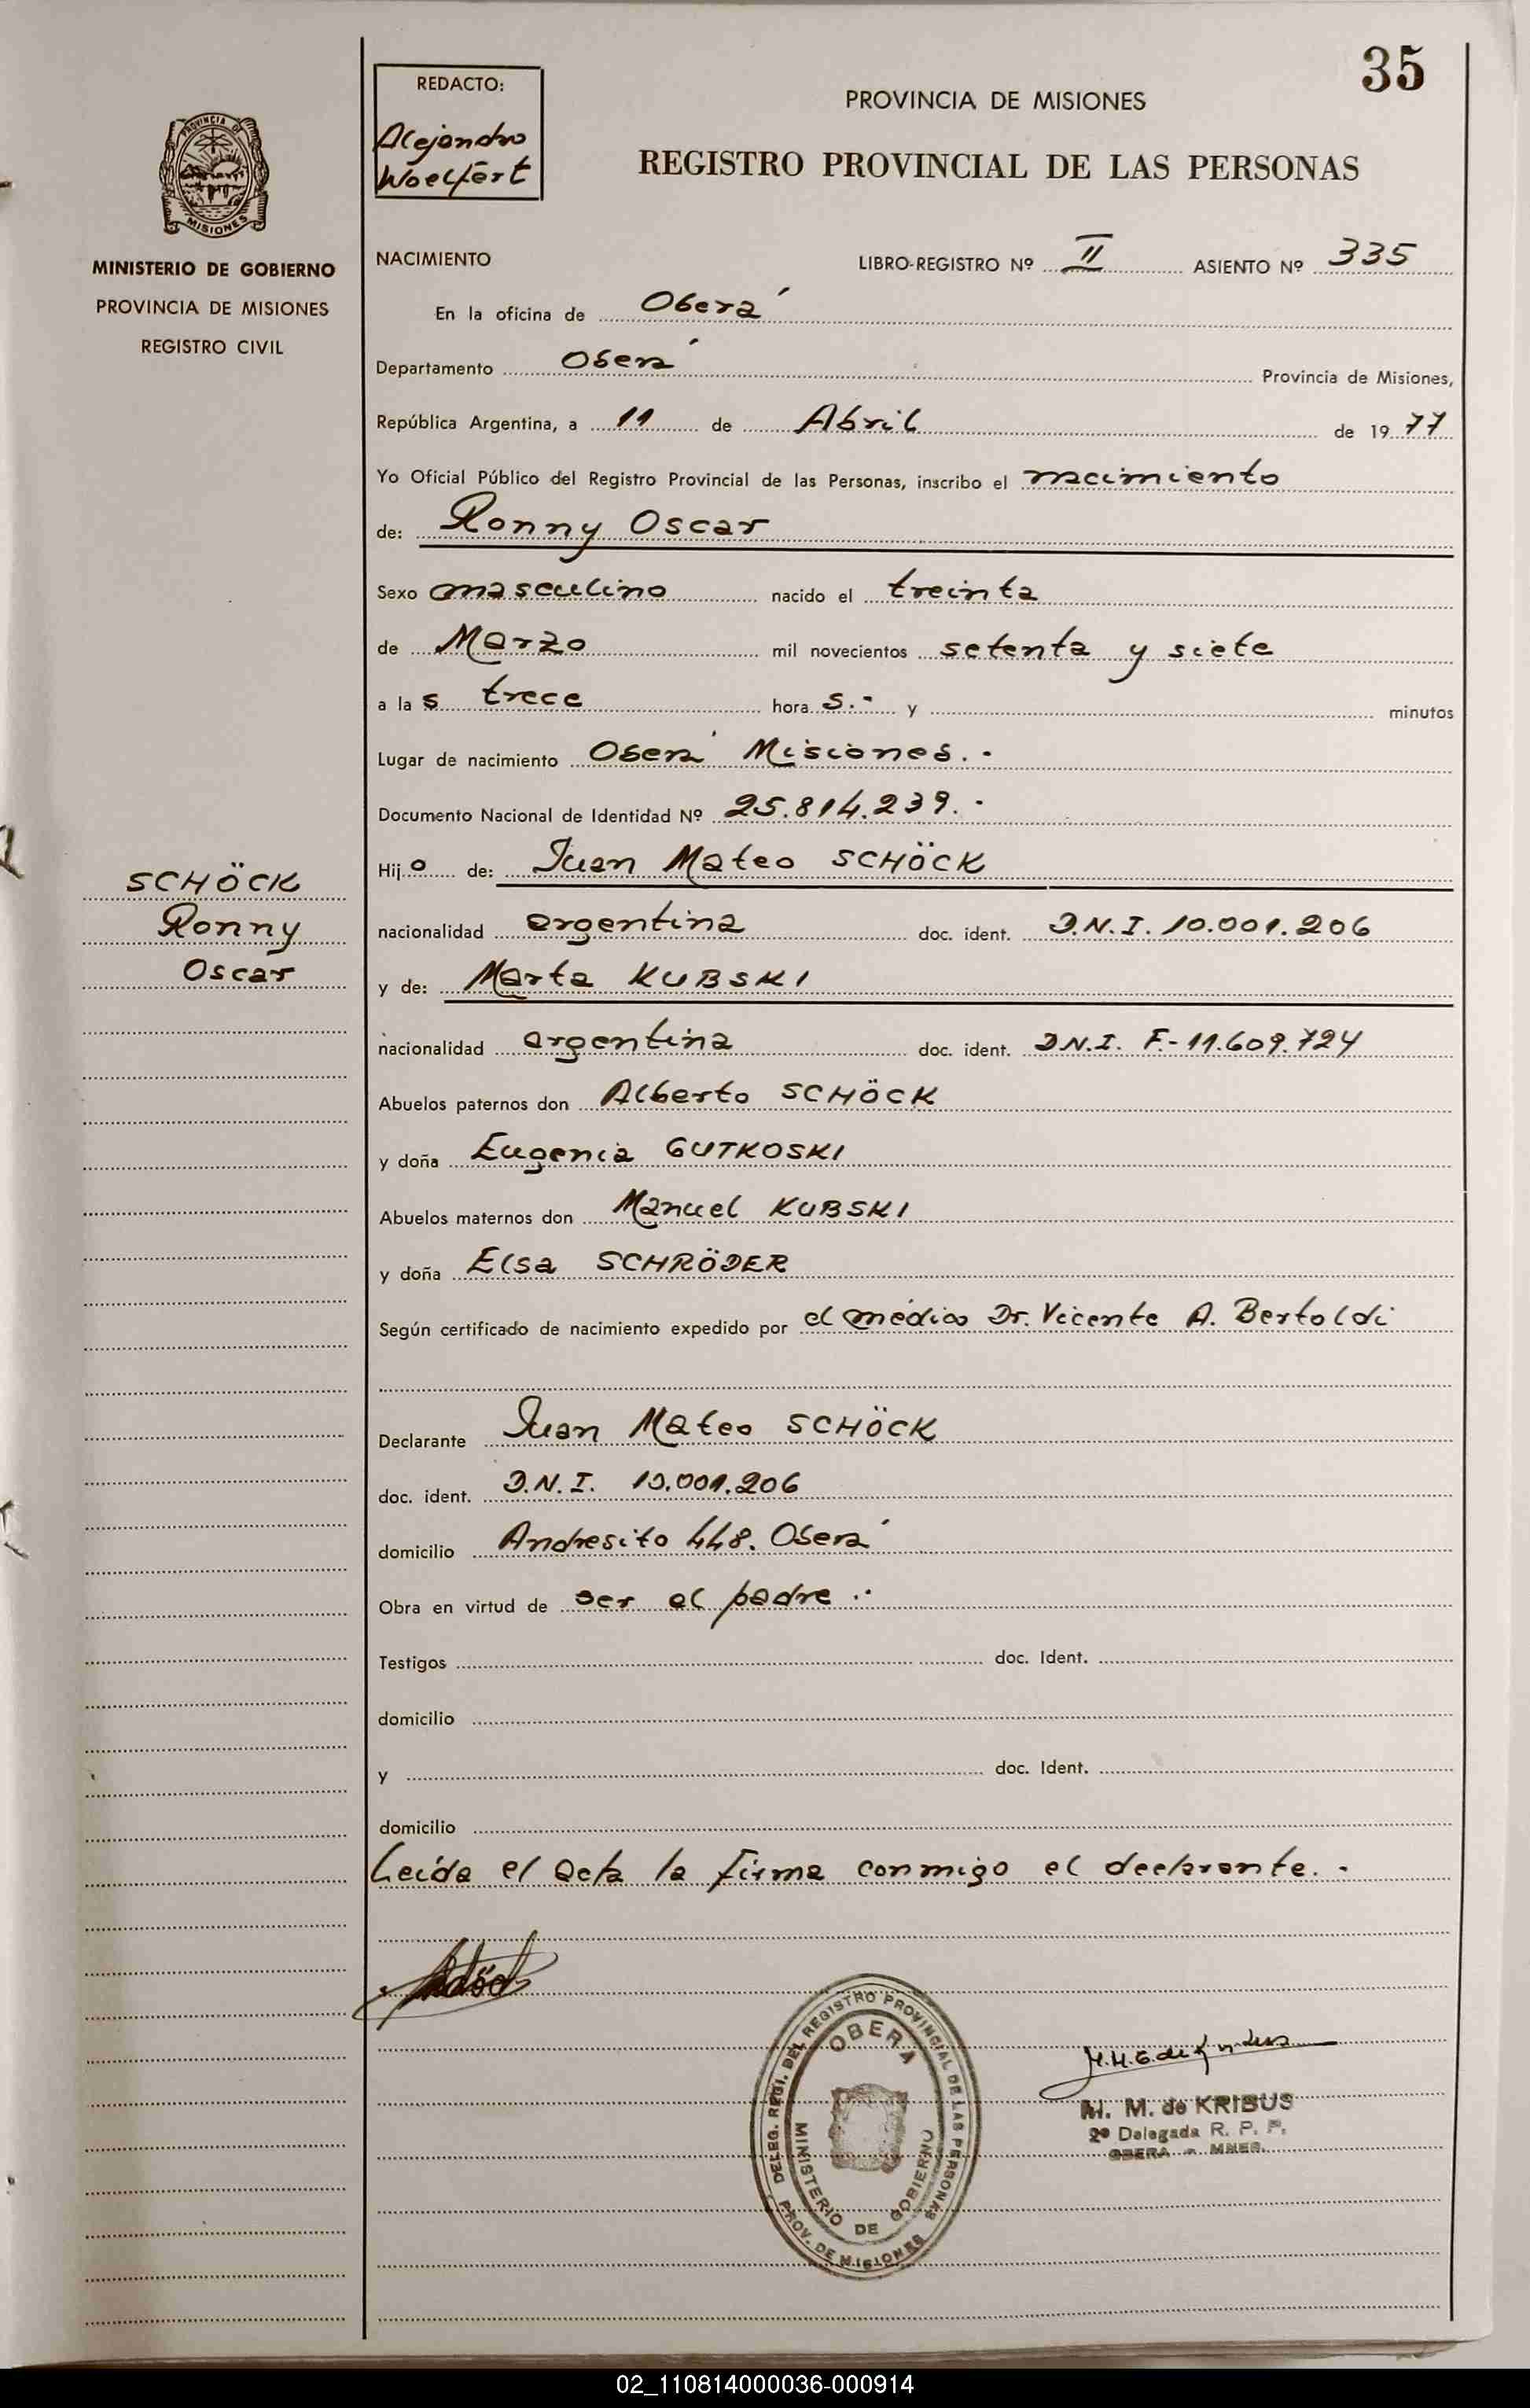 35
REDACTO:
Alejandro
Woelfert
PROVINCIA DE MISIONES
REGISTRO PROVINCIAL DE LAS PERSONAS
PROVINCIA DE
MISIONES
MINISTERIO DE GOBIERNO
PROVINCIA DE MISIONES
REGISTRO CIVIL
NACIMIENTO
LIBRO-REGISTRO Nº II ASIENTO Nº 335
En la oficina de Oberá
Departamento Oberá Provincia de Misiones,
República Argentina, a 11 de Abril de 1977
Yo Oficial Público del Registro Provincial de las Personas, inscribo el nacimiento
de: Ronny Oscar
Sexo masculino nacido el treinta
de Marzo mil novecientos setenta y siete
a la s trece hora s.- y minutos
Lugar de nacimiento Oberá Misiones.-
Documento Nacional de Identidad Nº 25.814.239.-
Hijo de: Juan Mateo SCHÖCK
SCHÖCK
Ronny
Oscar
nacionalidad argentina doc. ident. D.N.I. 10.001.206
y de: Marta KUBSKI
nacionalidad argentina doc. ident. D.N.I. F.-11.609.724
Abuelos paternos don Alberto SCHÖCK
y doña Eugenia GUTKOSKI
Abuelos maternos don Manuel KUBSKI
y doña Elsa SCHRÖDER
Según certificado de nacimiento expedido por el médico Dr. Vicente A. Bertoldi
Declarante Juan Mateo SCHÖCK
doc. ident. D.N.I. 10.001.206
domicilio Andresito 448. Oberá
Obra en virtud de ser el padre.-
Testigos doc. Ident.
domicilio
y doc. Ident.
domicilio
Leída el acta la firma conmigo el declarante.-
DELEG. REGI. DEL REGISTRO PROVINCIAL DE LAS PERSONAS
OBERA
MINISTERIO DE GOBIERNO
PROV. DE MISIONES
M. M. de KRIBUS
2º Delegada R. P. P.
OBERA - MNES.
02_110814000036-000914